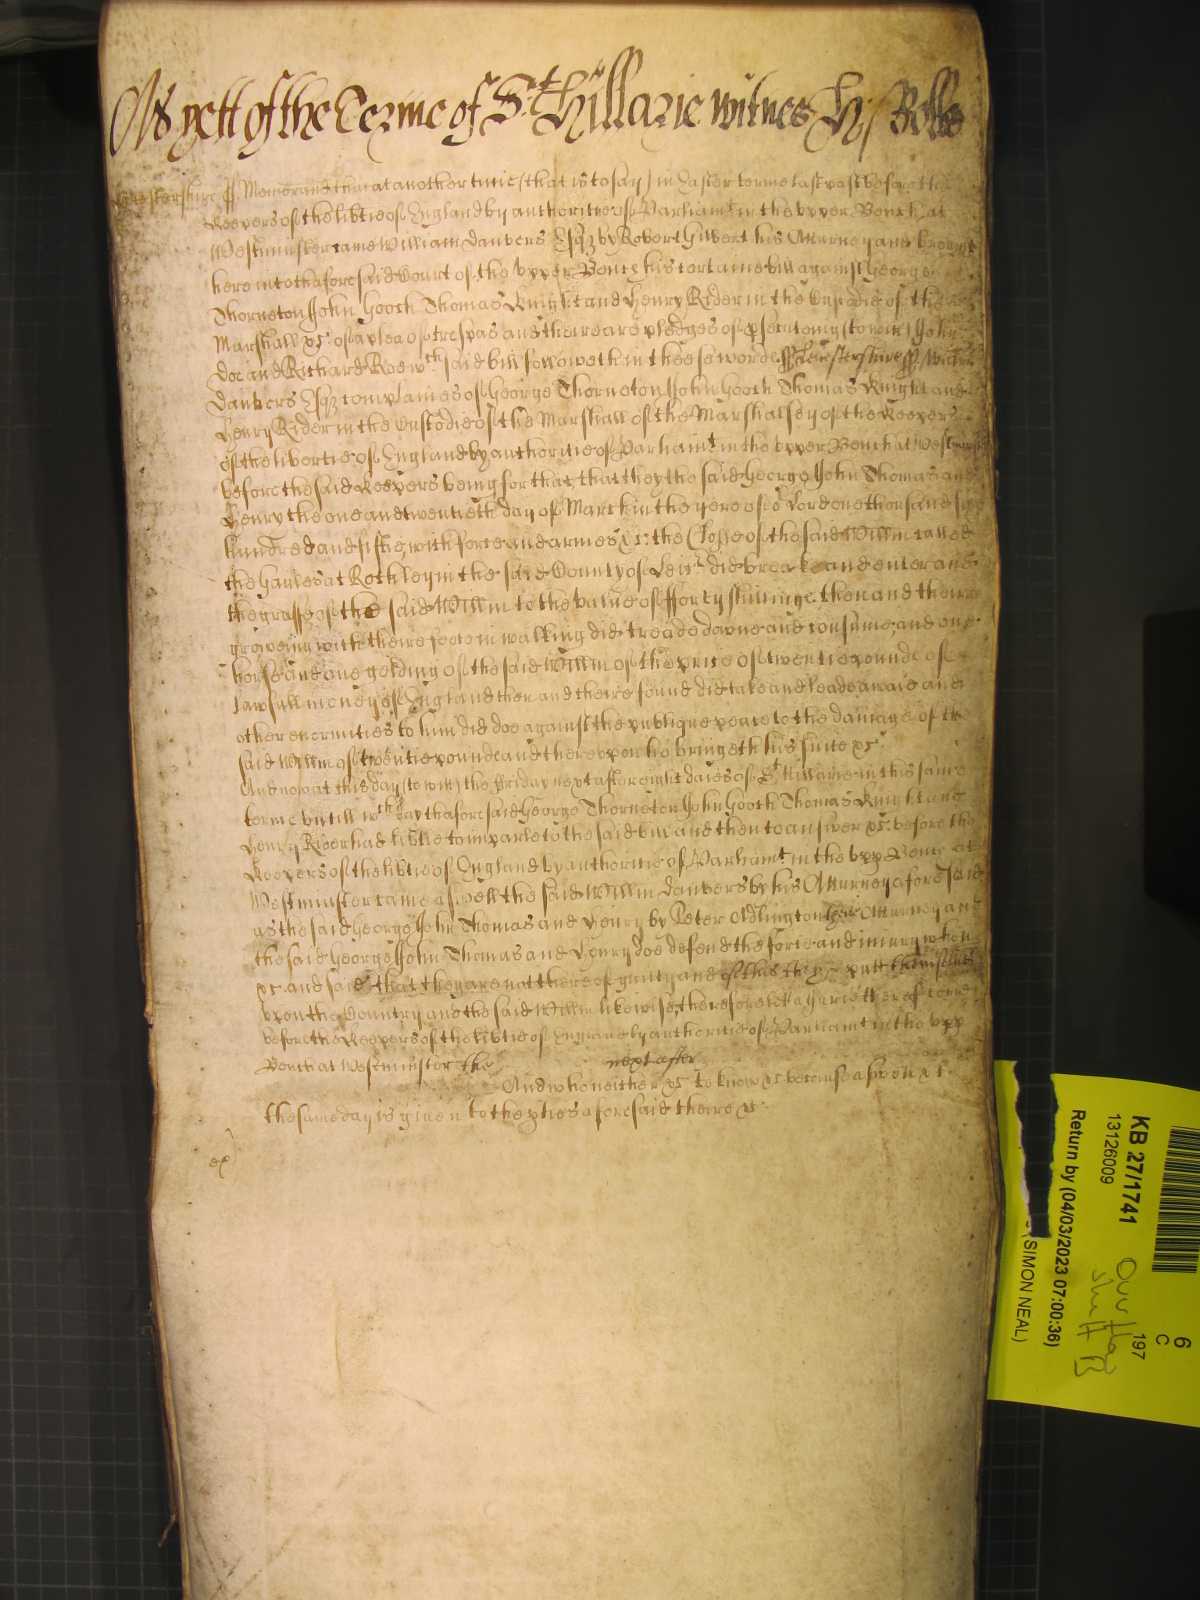 As yett of the Terme of St. Hillarie witnes Hy Rolle
Leicestershire ss Memorand that at another time (that is to say) in Easter terme last past before the
Keepers of the libtie of England by authoritie of Parliamt in the upper Bench at
Westminster came William Danvers Esqr by Robert Gilbert his Atturney and brought
here into thaforesaid Court of the upper Bench his certaine bill against George
Thorneton John Gooch Thomas Knight and Henry Rider in the Custodie of the
Marshall &c of a plea of trespas and there are pledges of psecuting (to wit) John
Doe and Richard Roe wch said bill followeth in these words ss Leicestershire ss Willm
Danvers Esqr complaines of George Thorneton John Gooch Thomas Knight and
Henry Rider in the Custodie of the Marshall of the Marshalsey of the Keepers
of the libertie of England by authoritie of Parliamt in the upper Bench at Westminster
before the said Keepers being for that, that they the said George John Thomas and
Henry the one and twentieth day of March in the yere of or Lord one thousand sixe
hundred and fiftie with force and armes &c the Close of the said Willm called
the Haules at Rothley in the said County of Leic did breake and enter and
the grasse of the said Willm to the value of fforty shillings then and there
groweing with theire feete in walking did treade downe and consume, and one
horse and one gelding of the said Willm of the price of twentie pounds of
lawfull money of England then and theire found did take and leade awaie and
other enormities to him did doe against the publique peace to the damage of the
said Willm of twentie pounds and thereupon he bringeth his suite &c
And now at this day (to wit) the Friday next after eight daies of St Hillarie in this same
terme untill wch day thaforesaid George Thorneton John Gooch Thomas Knight and
Henry Rider had libtie to imparle to the said bill and then to answer &c before the
Keepers of the libtie of England by authoritie of Parliamt in the upp Bench at
Westminster came aswell the said Willm Danvers by his Atturney aforesaid
as the said George John Thomas and Henry by Peter Adlington their Atturney and
the said George John Thomas and Henry doe defend the force and iniury when
&c and said that they are not thereof guilty and of this they putt themselves
upon the Country and the said Willm likewise, therefore let a Jurie thereof come
before the Keepers of the libtie of England by authoritie of Parliamt in the upp
Bench at Westminster the next after
And who neither &c to know &c because aswell &c
the same day is given to the pties aforesaid theire &c
KB 27/1741
13126009
Return by (04/03/2023 07:00:36)
(SIMON NEAL)
6
C
197